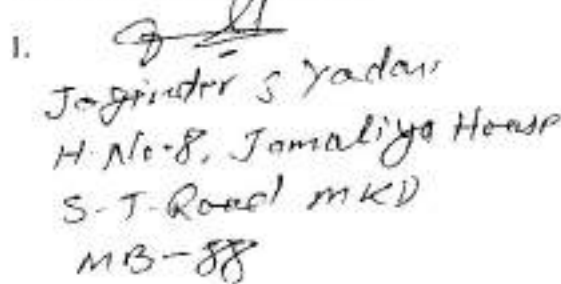 1.
Joginder S Yadav
H.No-8, Jamaliya House
S-T-Road MKD
MB-88